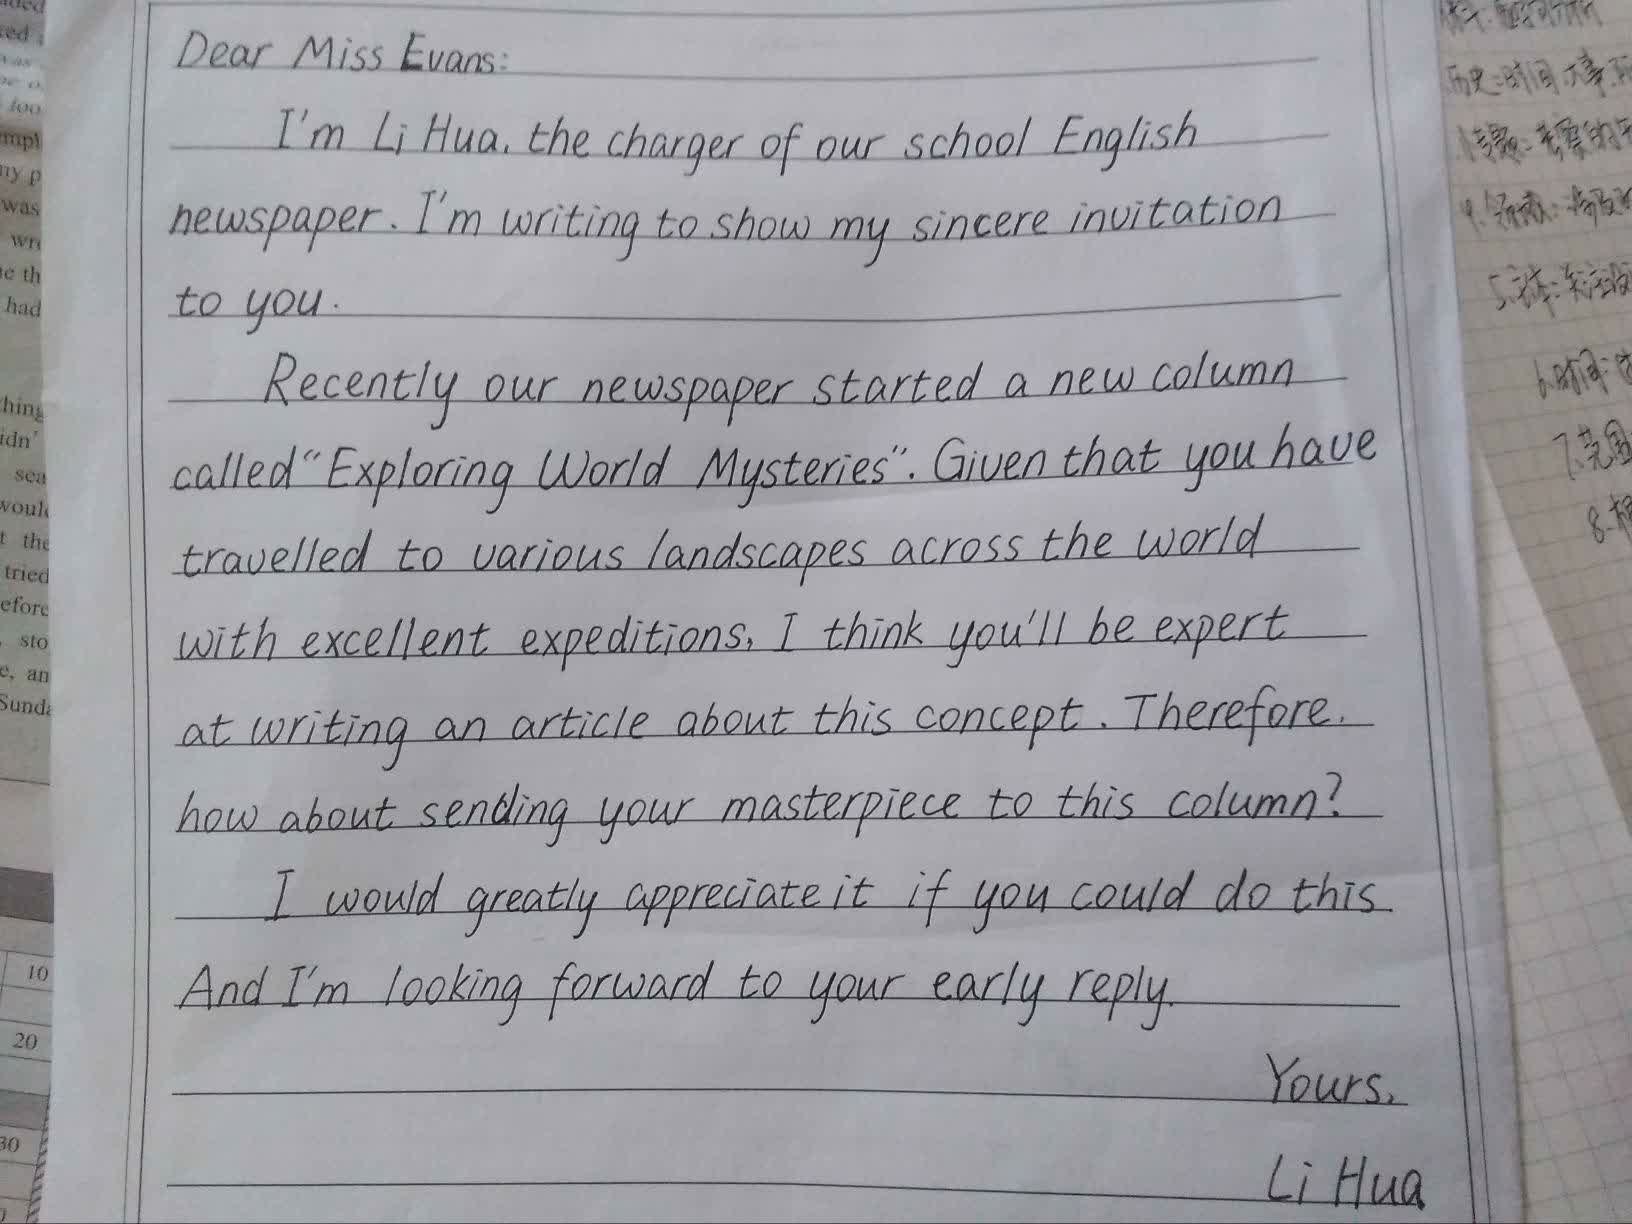 Dear Miss Evans:
I'm Li Hua, the charger of our school English
newspaper. I'm writing to show my sincere invitation
to you.
Recently our newspaper started a new column
called "Exploring World Mysteries". Given that you have
travelled to various landscapes across the world
with excellent expeditions, I think you'll be expert
at writing an article about this concept. Therefore,
how about sending your masterpiece to this column?
I would greatly appreciate it if you could do this.
And I'm looking forward to your early reply.
Yours,
Li Hua
had
sea
the
tried
sto
10
20
30